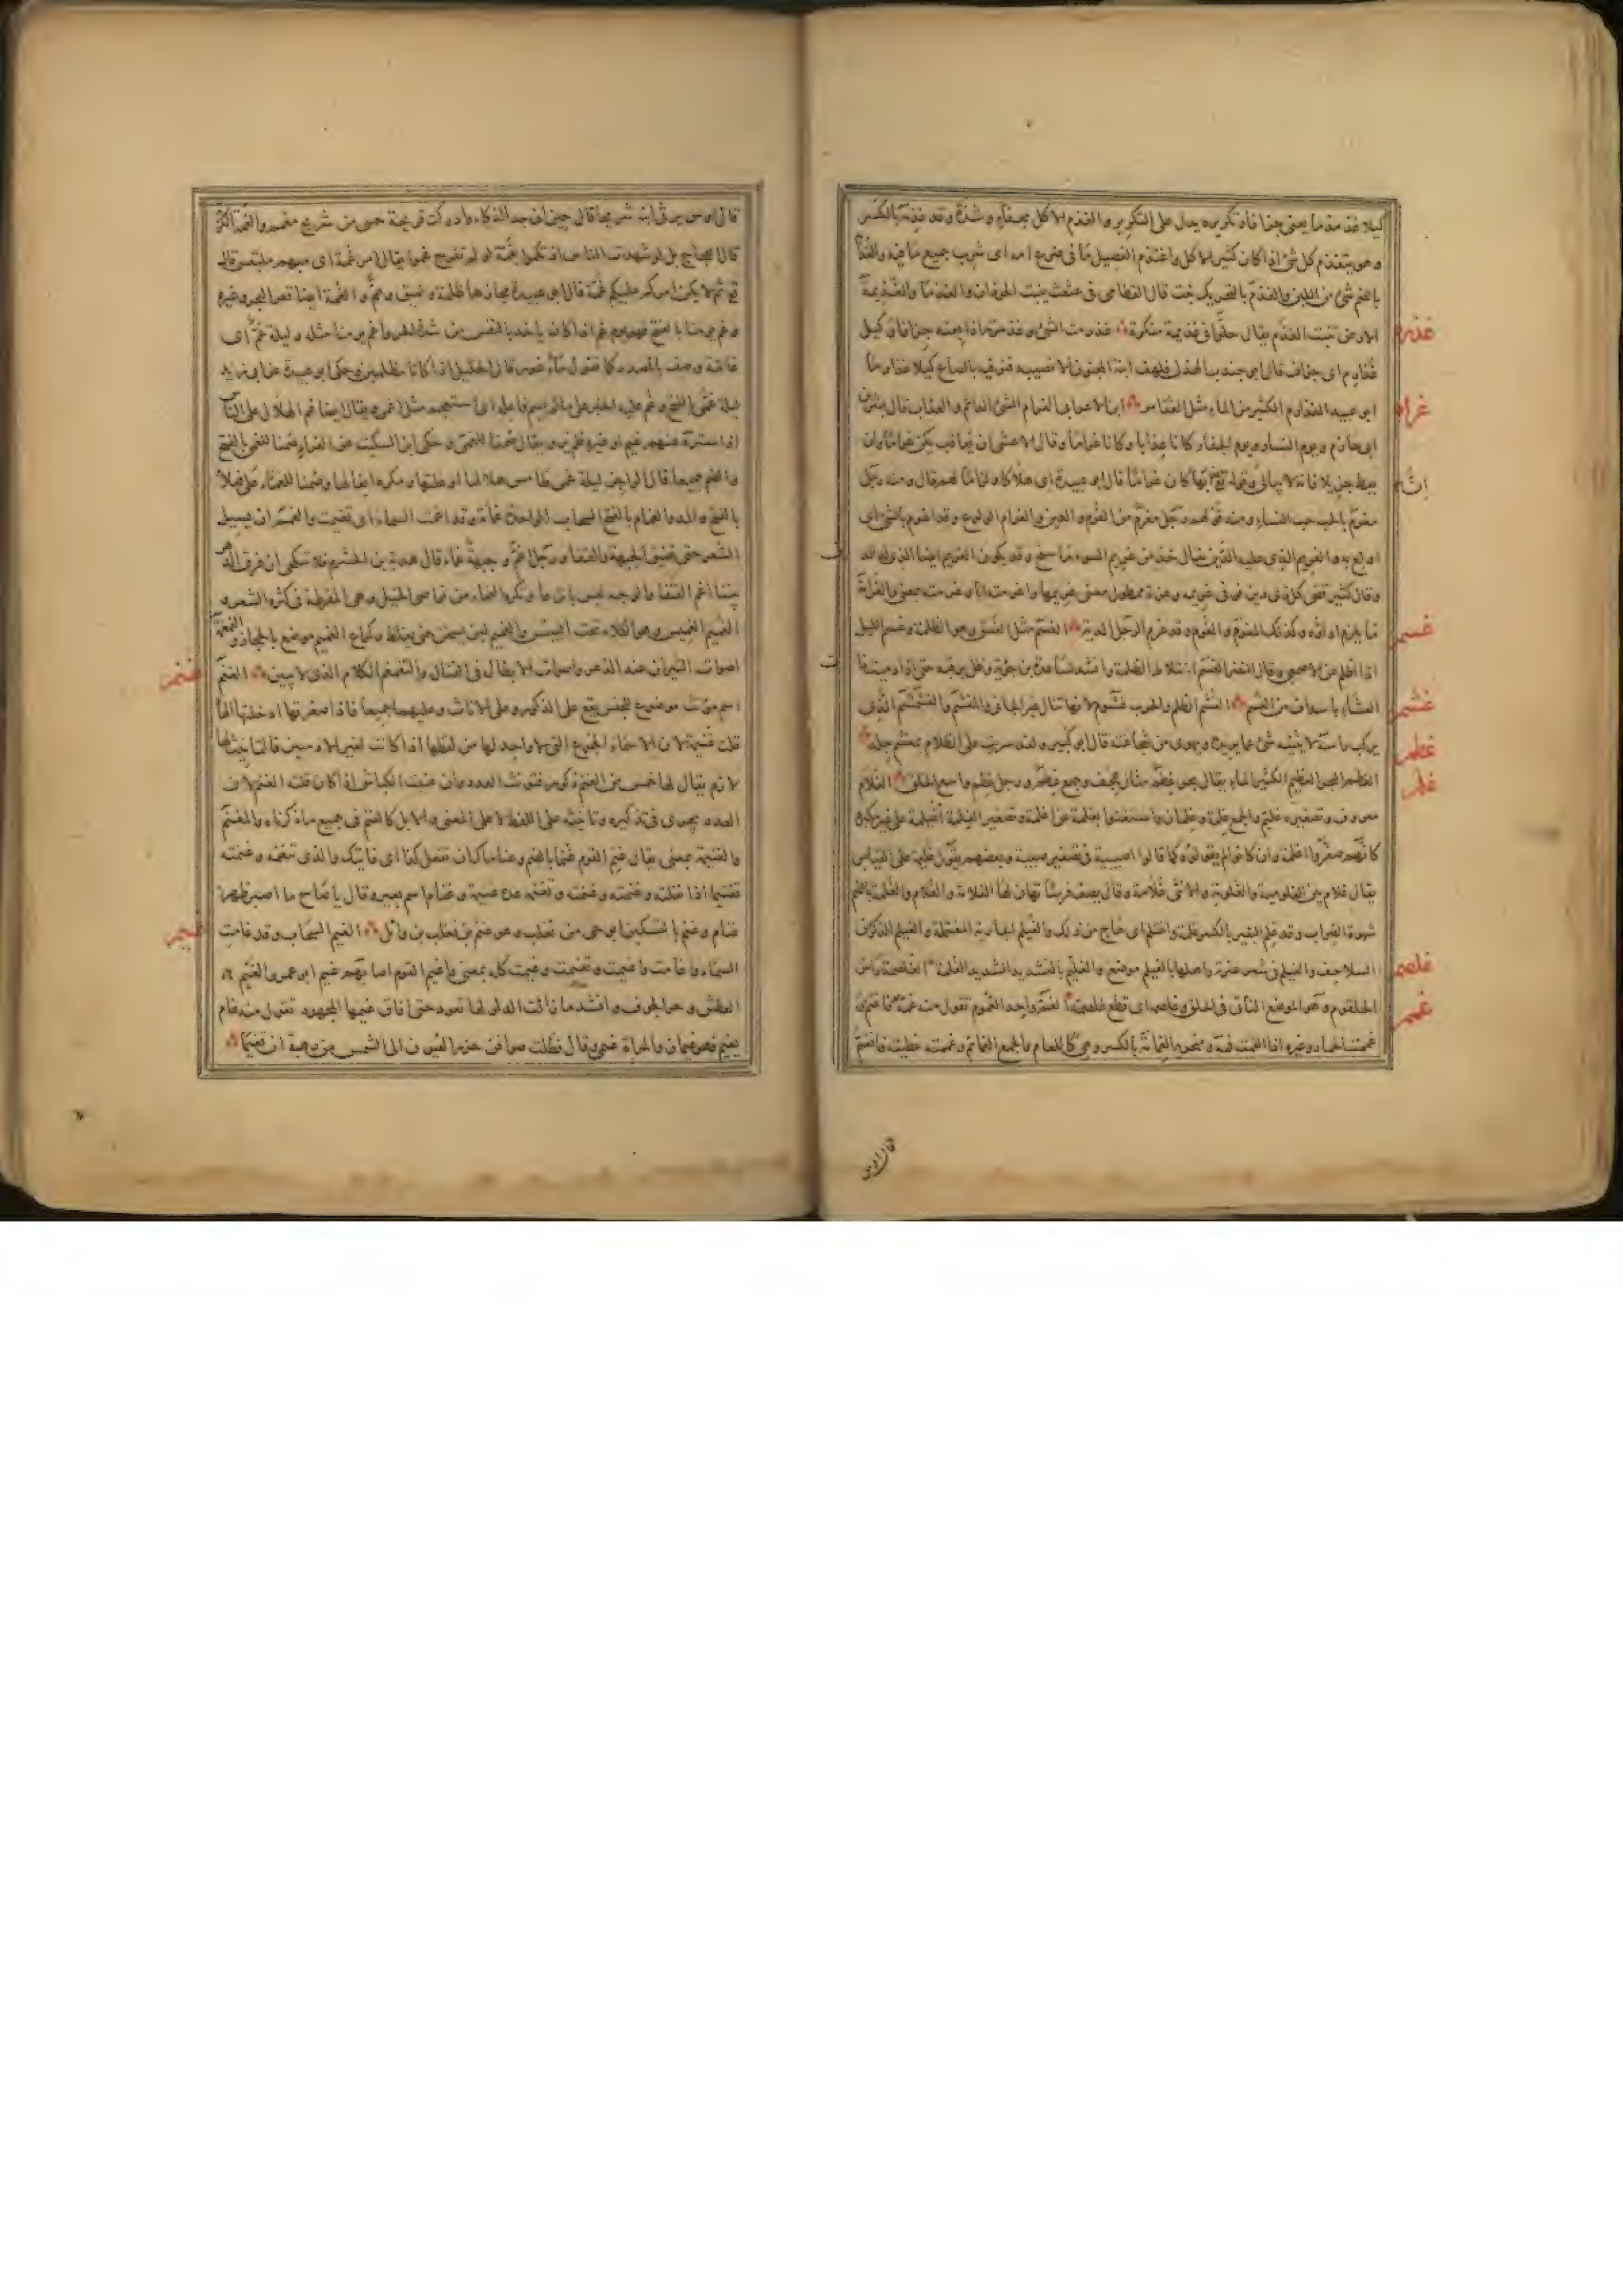 كيلا غذمذما يعنى جزافا وتكريره يدل على التكرير والغذم الاكل بجفاء وشدة وقد غذمه بالكسر
وهو يتغذم كل شئ اذا كان كثير الاكل واغتذم الفصيل ما فى ضرع امه اى شرب جميع ما فيه
بالضم شئ من اللبن والغذم بالتحريك نبت قال القطامى فى عثعث ينبت الحوذان والغذما والغذيمة
الارض تنبت الغذم يقال حلوا فى غذيمة منكرة غذرمت الشئ وغذمرته اذا بعته جزافا وكيل
غذارم اى جزاف قال ابو جندب الهذلى فلهف ابنة المجنون الا تصيبه فتوفيه بالصاع كيلا غذارما
ابو عبيد الغذارم الكثير من الماء مثل الغذامر ابن الاعرابى الغرام الشئ الدائم والعذاب قال بشر بن
ابى حازم ويوم النسار ويوم الجفار كانا عذابا وكانا غراما وقال الاعشى ان يعاقب يكن غراما وان
يعط جزيلا فانه لا يبالى وقوله تع ان عذابها كان غراما قال ابو عبيدة اى هلاكا ولزاما لهم قال ومنه رجل
مغرم بالحب حب النساء ومنه قولهم رجل مغرم من الغرم والدين والغرام الولوع وقد اغرم بالشئ اى
اولع به والغريم الذى عليه الدين يقال خذ من غريم السوء ما سنح وقد يكون الغريم ايضا الذى له الدين
وقال كثير قضى كل ذى دين فوفى غريمه وعزة ممطول معنى غريمها واغرمته انا وغرمته بمعنى والغرامة
ما يلزم اداؤه وكذلك المغرم والغرم وقد غرم الرجل الدية الغسم مثل الغسق وهو الظلمة وغسم الليل
اذا اظلم عن الاصمعى وقال النضر الغسم اختلاط الظلمة وانشد لساعدة بن جؤية وظل يرقبه حتى اذا دمست ذا
العشاء باسداف من الغسم الغشم الظلم والحرب غشوم لانها تنال غير الجانى والمغشم والغشمشم الذى
يركب راسه لا يثنيه شئ عما يريد ويهوى من شجاعته قال ابو كبير ولقد سريت على الظلام بمغشم جلد
الغطم البحر العظيم الكثير الماء يقال بحر غطم مثال هجف وجمع غطم ورجل غطم واسع الخلق الغلام
معروف وتصغيره غليم والجمع غلمة وغلمان واستغنوا بغلمة عن اغلمة وتصغير الغلمة اغيلمة على غير مكبره
كانهم صغروا اغلمة وان كانوا لم يقولوه كما قالوا اصيبية فى تصغير صبية وبعضهم يقول غليمة على القياس
يقال غلام بين الغلومية والغلومة والانثى غلامة وقال يصف فرسا تهان لها الغلامة والغلام والغلمة بالضم
شهوة الضراب وقد غلم البعير بالكسر غلمة واغتلم اى هاج من ذلك والغيلم الجارية المغتلمة والغيلم الذكر من
السلاحف والغيلم فى شعر عنترة واهلها بالغيلم موضع والغليم بالتشديد الشديد الغلمة الغلصمة راس
الحلقوم وهو الموضع الناتى فى الحلق وغلصمه اى قطع غلصمته الغم واحد الغموم تقول منه غمه فاغتم
غممت الحمار وغيره اذا القمت فمه ومنخريه الغمامة بالكسر وهى كالكعام والجمع الغمائم وغممته غطيته فانغم
غذرم
غرام
غسم
غشم
غطم
غلم
غلصم
غمم
قال اوس
قال اوس يرثى ابنه شريحا
قال العجاج بل لو شهدت الناس اذ تكموا بغمة لو لم تفرج غموا يقال امر غمة اى مبهم ملتبس قال
تع ثم لا يكن امركم عليكم غمة قال ابو عبيدة مجازها ظلمة وضيق وهم والغمة ايضا قعر النحى وغيره
وغم يومنا بالفتح فهو يوم غم اذا كان ياخذ بالنفس من شدة الحر واغم يومنا مثله وليلة غم اى
غامة وصف بالمصدر كما تقول ماء غور قال الخليل اذا كانا مظلمين وحكى ابو عبيدة عن ابى زيد
ليلة غمى بالفتح وغم عليه الخبر على ما لم يسم فاعله اى استعجم مثل اغمى ويقال ايضا غم الهلال على الناس
اذا ستره عنهم غيم او غيره فلم ير ويقال صمنا للغمى وحكى ابن السكيت عن الفراء صمنا للغمى بالفتح
والضم جميعا قال الراجز ليلة غمى طامس هلالها اوغلتها ومكره ايغالها وصمنا للغماء على فعلاء
بالفتح والمد والغمام بالفتح السحاب الواحدة غمامة وقد اغمت السماء اى تغيمت والغمم ان يسيل
الشعر حتى تضيق الجبهة والقفا ورجل اغم وجبهة غماء قال هدبة بن الخشرم فلا تنكحى ان فرق الدهر
بيننا اغم القفا والوجه ليس بانزعا وتكره الغماء من نواصى الخيل وهى المفرطة فى كثرة الشعر
الغميم الغميس وهو الكلاء تحت اليبيس والغميم لبن يسخن حتى يغلظ وكراع الغميم موضع بالحجاز والغمغمة
اصوات الثيران عند الذعر واصوات الابطال فى القتال والتغمغم الكلام الذى لا يبين الغنم
اسم مؤنث موضوع للجنس يقع على الذكور وعلى الاناث وعليهما جميعا فاذا صغرتها ادخلتها الهاء
قلت غنيمة لان الاسماء الجموع التى لا واحد لها من لفظها اذا كانت لغير الادميين فالتانيث لها
لازم يقال لها خمس من الغنم ذكور فتونث العدد وان عنيت الكباش اذا كان يليه الغنم لان
العدد يجرى فى تذكيره وتانيثه على اللفظ لا على المعنى والابل كالغنم فى جميع ما ذكرناه والمغنم
والغنيمة بمعنى يقال غنم القوم غنما بالضم وغناماك ان تفعل كذا اى قاريك والذى تغنمه وغنمته
تغنيما اذا نفلته واغتنمه وتغنمه عده غنيمة وغنام اسم بعير وقال يا صاح ما اصبر ظهر
غنام وغنم بالتسكين ابو حى من تغلب وهو غنم بن تغلب بن وائل الغيم السحاب وقد غامت
السماء واغامت واغيمت وتغيمت وغيمت كله بمعنى واغيم القوم اصابهم غيم ابو عمرو الغيم
العطش وحر الجوف وانشد ما زالت الدلو لها تعود حتى افاق غيمها المجهود تقول منه غام
يغيم فهو غيمان والمراة غيمى وقال فظلت صوافن خزر العيون الى الشمس من رهبة ان تغيما
غنم
غيم